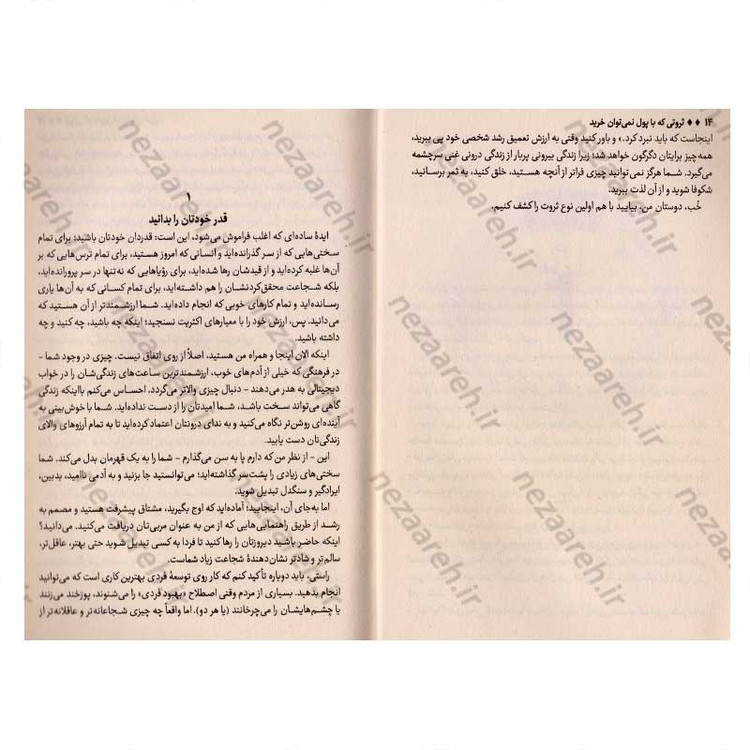 ۱۴ ♦♦ ثروتی که با پول نمی‌توان خرید
اینجاست که باید نبرد کرد.» و باور کنید وقتی به ارزش تعمیق رشد شخصی خود پی ببرید،
همه‌چیز برایتان دگرگون خواهد شد؛ زیرا زندگی بیرونی پربار از زندگی درونی غنی سرچشمه
می‌گیرد. شما هرگز نمی‌توانید چیزی فراتر از آنچه هستید، خلق کنید، به ثمر برسانید،
شکوفا شوید و از آن لذت ببرید.
خُب، دوستان من، بیایید با هم اولین نوع ثروت را کشف کنیم.
۱
قدر خودتان را بدانید
ایدهٔ ساده‌ای که اغلب فراموش می‌شود، این است: قدردان خودتان باشید؛ برای تمام
سختی‌هایی که از سر گذرانده‌اید و انسانی که امروز هستید، برای تمام ترس‌هایی که بر
آن‌ها غلبه کرده‌اید و از قیدشان رها شده‌اید، برای رؤیاهایی که نه‌تنها در سر پرورانده‌اید،
بلکه شجاعت محقق‌کردنشان را هم داشته‌اید، برای تمام کسانی که به آن‌ها یاری
رسانده‌اید و تمام کارهای خوبی که انجام داده‌اید. شما ارزشمندتر از آن هستید که
می‌دانید. پس، ارزش خود را با معیارهای اکثریت نسنجید؛ اینکه چه باشید، چه کنید و چه
داشته باشید.
اینکه الان اینجا و همراه من هستید، اصلاً از روی اتفاق نیست. چیزی در وجود شما -
در فرهنگی که خیلی از آدم‌های خوب، ارزشمندترین ساعت‌های زندگی‌شان را در خواب
دیجیتالی به هدر می‌دهند - دنبال چیزی والاتر می‌گردد. احساس می‌کنم بااینکه زندگی
گاهی می‌تواند سخت باشد، شما امیدتان را از دست نداده‌اید. شما با خوش‌بینی به
آینده‌ای روشن‌تر نگاه می‌کنید و به ندای درونتان اعتماد کرده‌اید تا به تمام آرزوهای والای
زندگی‌تان دست یابید.
این - از نظر من که دارم پا به سن می‌گذارم - شما را به یک قهرمان بدل می‌کند. شما
سختی‌های زیادی را پشت‌سر گذاشته‌اید؛ می‌توانستید جا بزنید و به آدمی ناامید، بدبین،
ایرادگیر و سنگدل تبدیل شوید.
اما به‌جای آن، اینجایید؛ آماده‌اید که اوج بگیرید، مشتاق پیشرفت هستید و مصمم به
رشد از طریق راهنمایی‌هایی که از من به عنوان مربی‌تان دریافت می‌کنید. می‌دانید؟
اینکه حاضر باشید دیروزتان را رها کنید تا فردا به کسی تبدیل شوید حتی بهتر، عاقل‌تر،
سالم‌تر و شادتر نشان‌دهندهٔ شجاعت زیاد شماست.
راستی، باید دوباره تأکید کنم که کار روی توسعهٔ فردی بهترین کاری است که می‌توانید
انجام بدهید. بسیاری از مردم وقتی اصطلاح «بهبود فردی» را می‌شنوند، پوزخند می‌زنند
یا چشم‌هایشان را می‌چرخانند (یا هر دو). اما واقعاً چه چیزی شجاعانه‌تر و عاقلانه‌تر از
nezaareh.ir
nezaareh.ir
nezaareh.ir
nezaareh.ir
nezaareh.ir
nezaareh.ir
nezaareh.ir
nezaareh.ir
nezaareh.ir